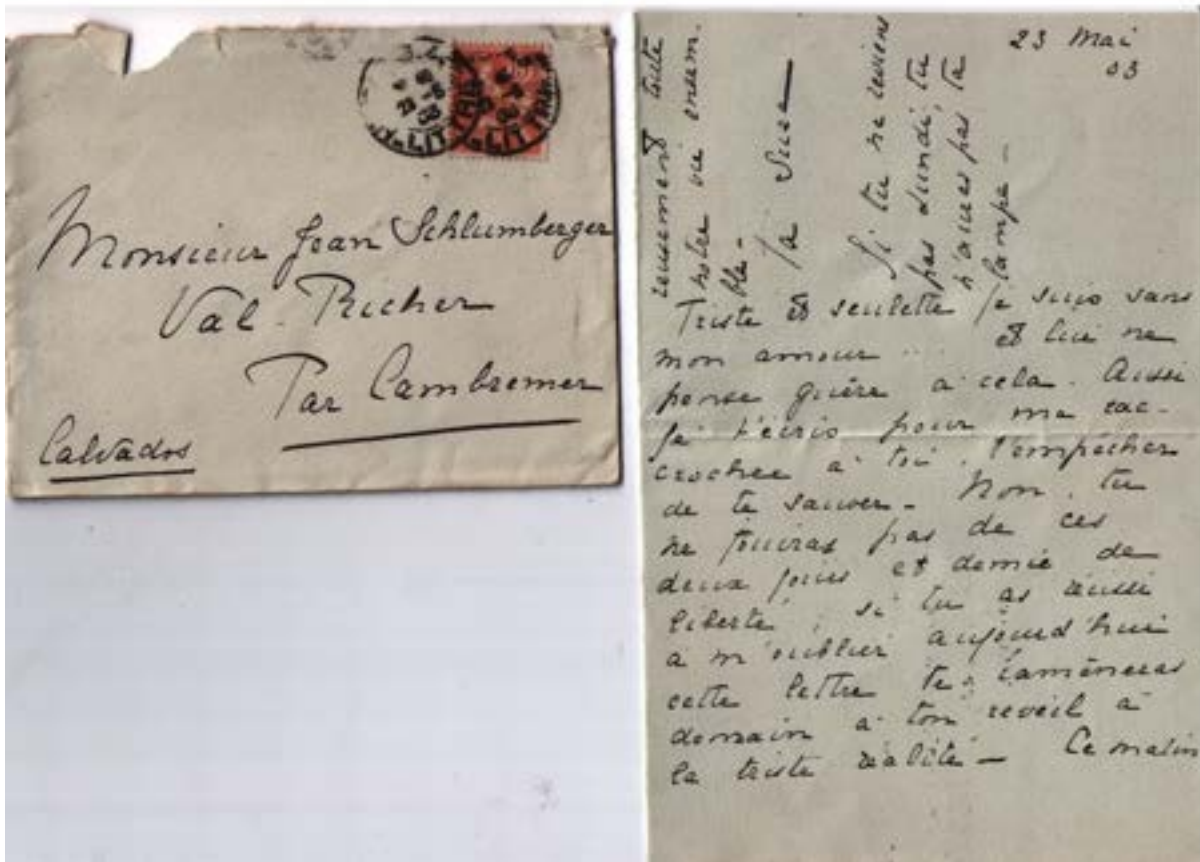 Monsieur Jean Schlumberger
Val-Richer
Par Cambremer
Calvados
23 Mai
03
Triste et seulette je suis sans
mon amour ... et lui ne
pense guère à cela. Aussi
je t'écris pour me rac-
crocher à toi, t'empêcher
de te sauver - Non, tu
ne jouiras pas de ces
deux jours et demie de
liberté, si tu as réussi
à m'oublier aujourd'hui
cette lettre te ramèneras
demain à ton réveil à
la triste réalité - Ce matin
reusement toute
notre vie ensem-
ble -
Ta Suse
Si tu ne reviens
pas lundi, tu
n'auras pas ta
lampe -